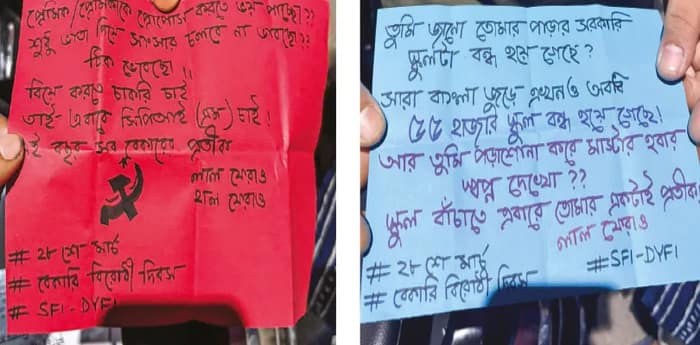 প্রেমিক/প্রেমিকাকে প্রোপোস করতে ভয় পাচ্ছো??
শুধু ভাতা দিয়ে সংসার চলবে না ভাবছো??
ঠিক ভেবেছো!!
বিয়ে করতে চাকরি চাই
তাই- এবারে সিপিআই (এম) চাই!
এই বছর সব বেকারের প্রতীক
লাল ফেরাও
হাল ফেরাও
# ২৮ শে মার্চ
# বেকারি বিরোধী দিবস
# SFI - DYFI
তুমি জানো তোমার পাড়ার সরকারি
স্কুলটা বন্ধ হয়ে গেছে?
সারা বাংলা জুড়ে এখনও অবধি
৫৫ হাজার স্কুল বন্ধ হয়ে গেছে!
আর তুমি পড়াশোনা করে মাস্টার হবার
স্বপ্ন দেখো??
স্কুল বাঁচাতে এবারে তোমার একটাই প্রতীক
লাল ফেরাও
# ২৮ শে মার্চ
# বেকারি বিরোধী দিবস
#SFI-DYFI